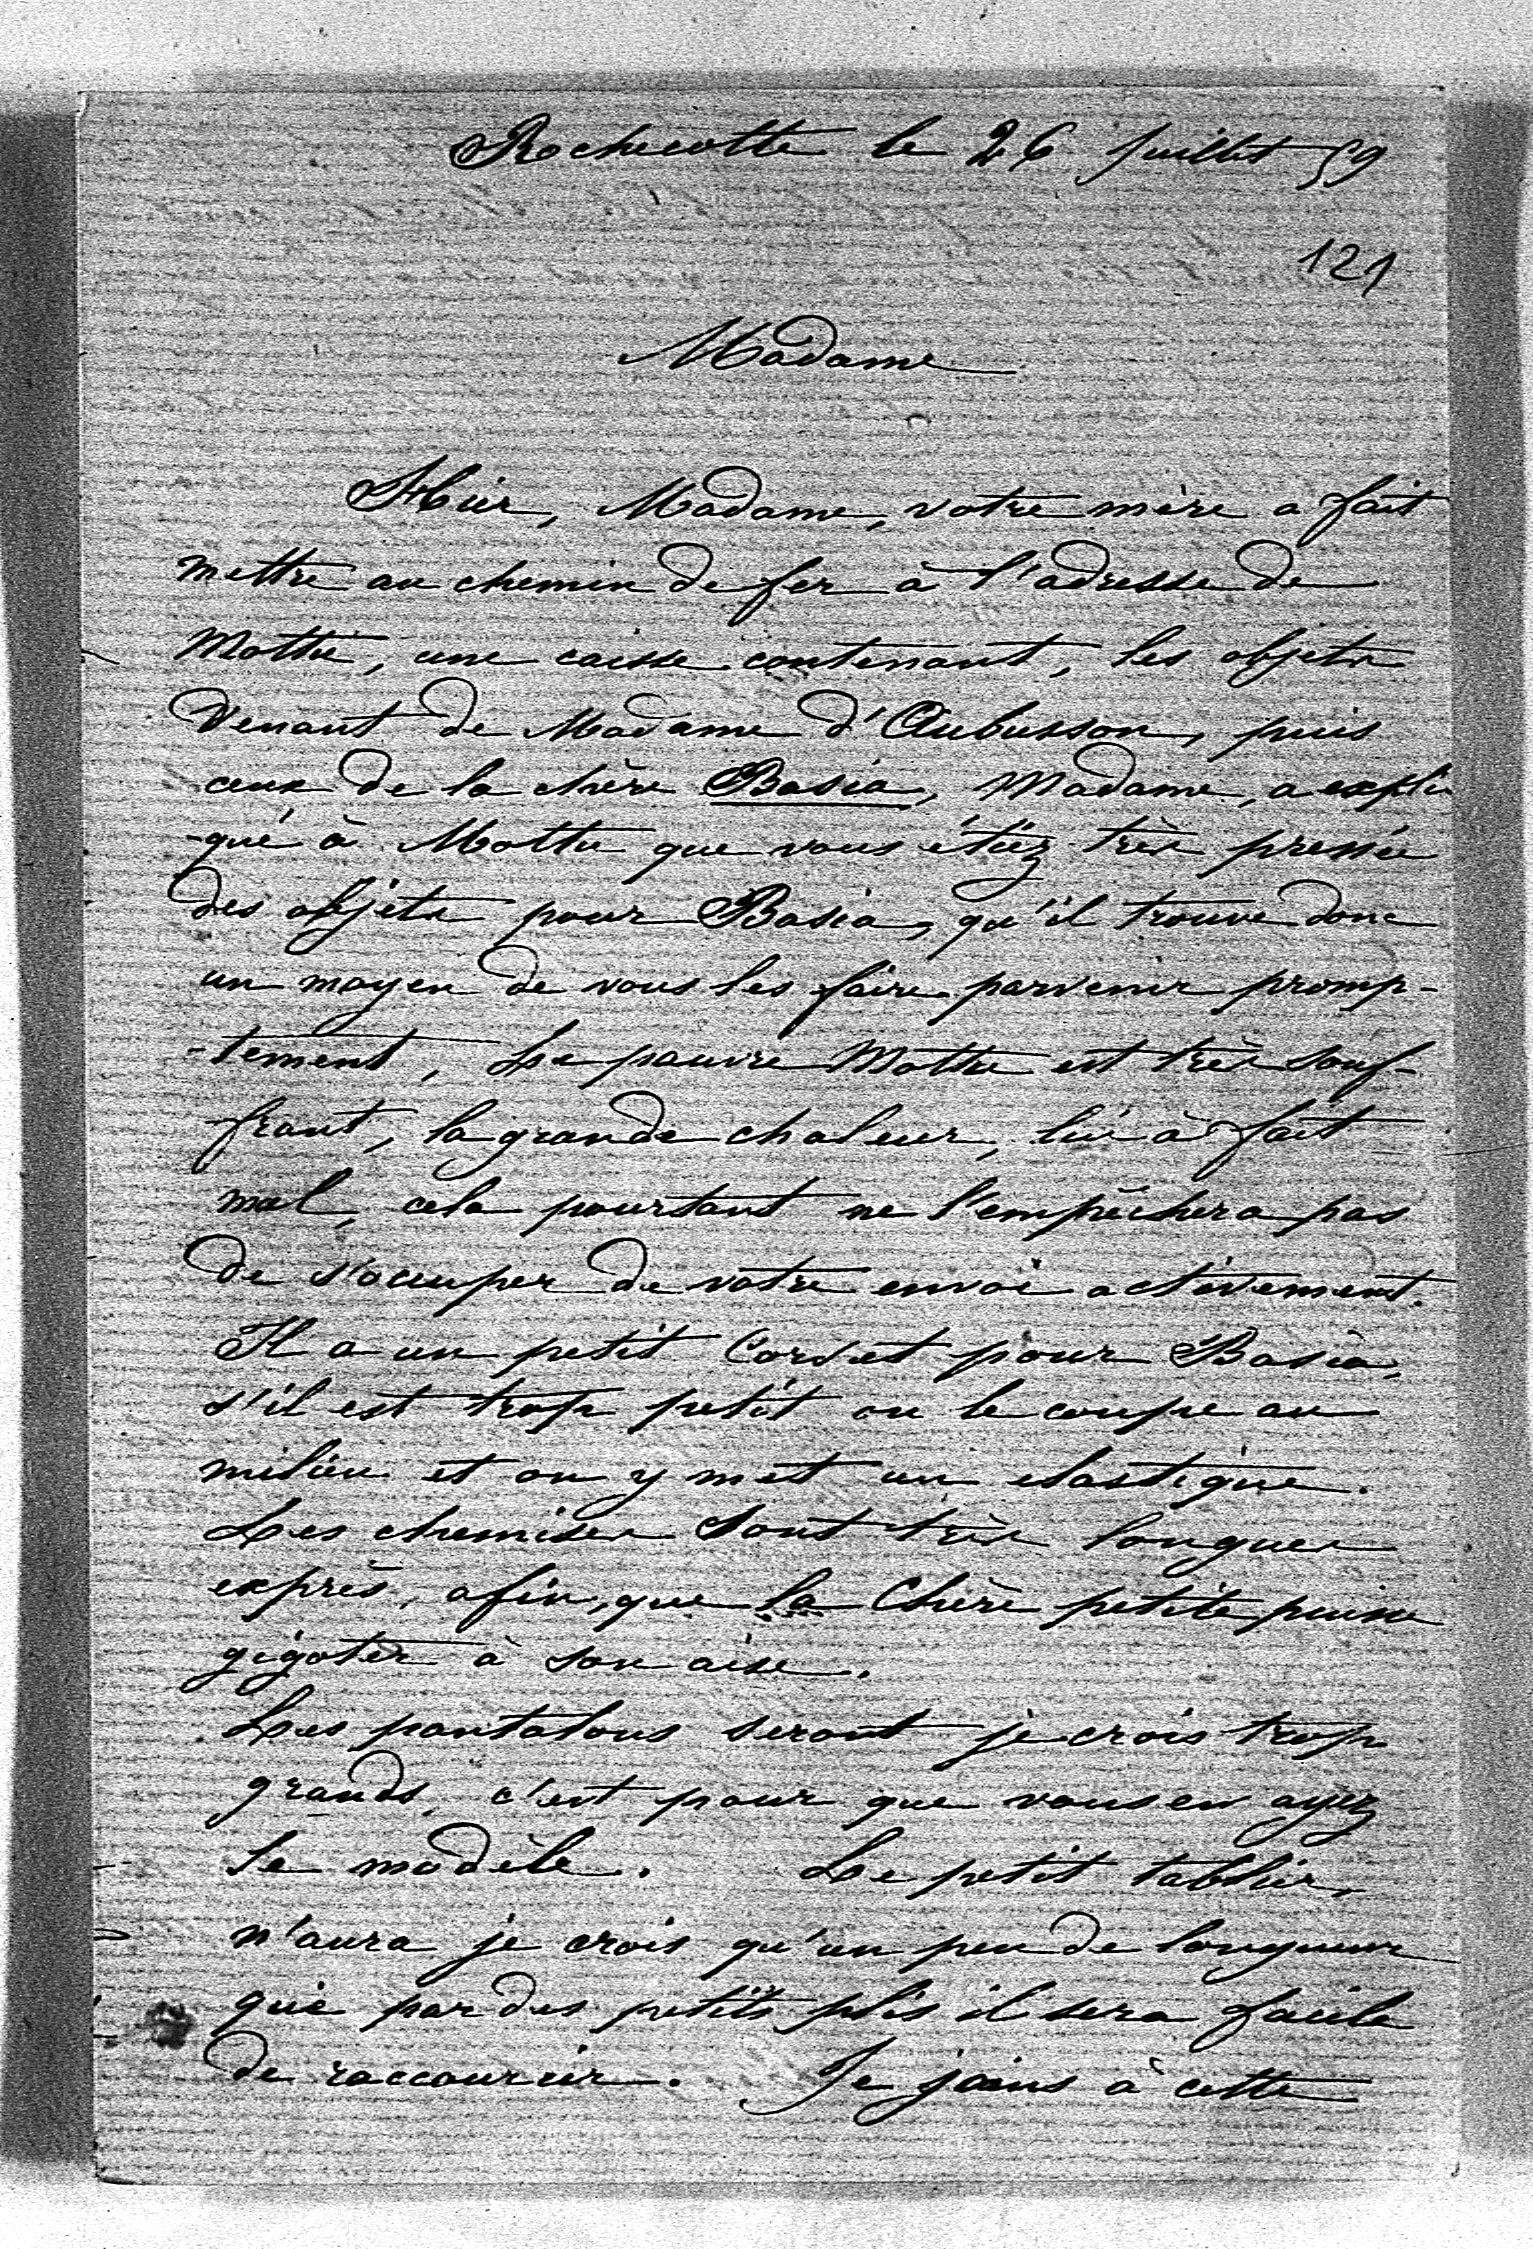 Rochecotte le 26 juillet 59
121
Madame
Hier, Madame, votre mère a fait
mettre au chemin de fer à l'adresse de
Mottu, une caisse contenant, les objets
venant de Madame d'Aubusson, puis
ceux de la chère Basia, Madame, a expli
-qué à Mottu que vous étiez très pressée
des objets pour Basia, qu'il trouve donc
un moyen de vous les faire parvenir promp-
-tement, Le pauvre Mottu est très souf-
frant, la grande chaleur, lui à fait
mal, cela pourtant ne l'empêchera pas
de s'occuper de votre envoi activement.
Il a un petit Corset pour Basia,
s'il est trop petit on le coupe au
milieu et on y met un elastique.
Les chemises sont très longues
exprès, afin, que la Chère petite puisse
gigoter à son aise.
Les pantalons seront je crois trop
grands, c'est pour que vous en ayez
le modèle. Le petit tablier,
n'aura je crois qu'un peu de longueur
que par des petits plis il sera facile
de raccourcir. Je joins à cette